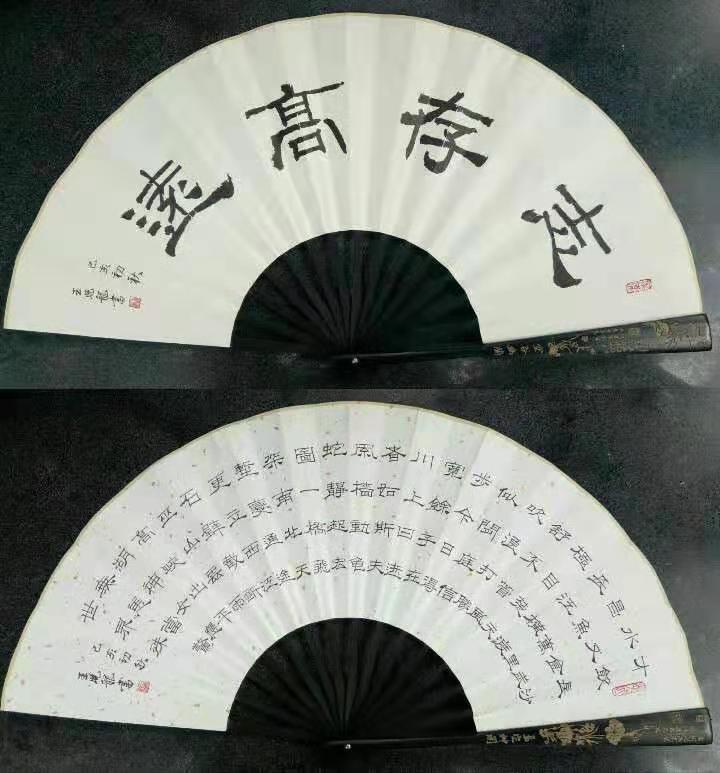 志存高遠
己亥初秋
王曉龍書
才飲長沙
水又食武
昌魚萬里
長江橫渡
極目楚天
舒不管風
吹浪打勝
似閒庭信
步今日得
寬餘子在
川上曰逝
者如斯夫
風檣動龜
蛇靜起宏
圖一橋飛
架南北天
塹變通途
更立西江
石壁截斷
巫山雲雨
高峽出平
湖神女應
無恙當驚
世界殊
己亥初秋
王曉龍書